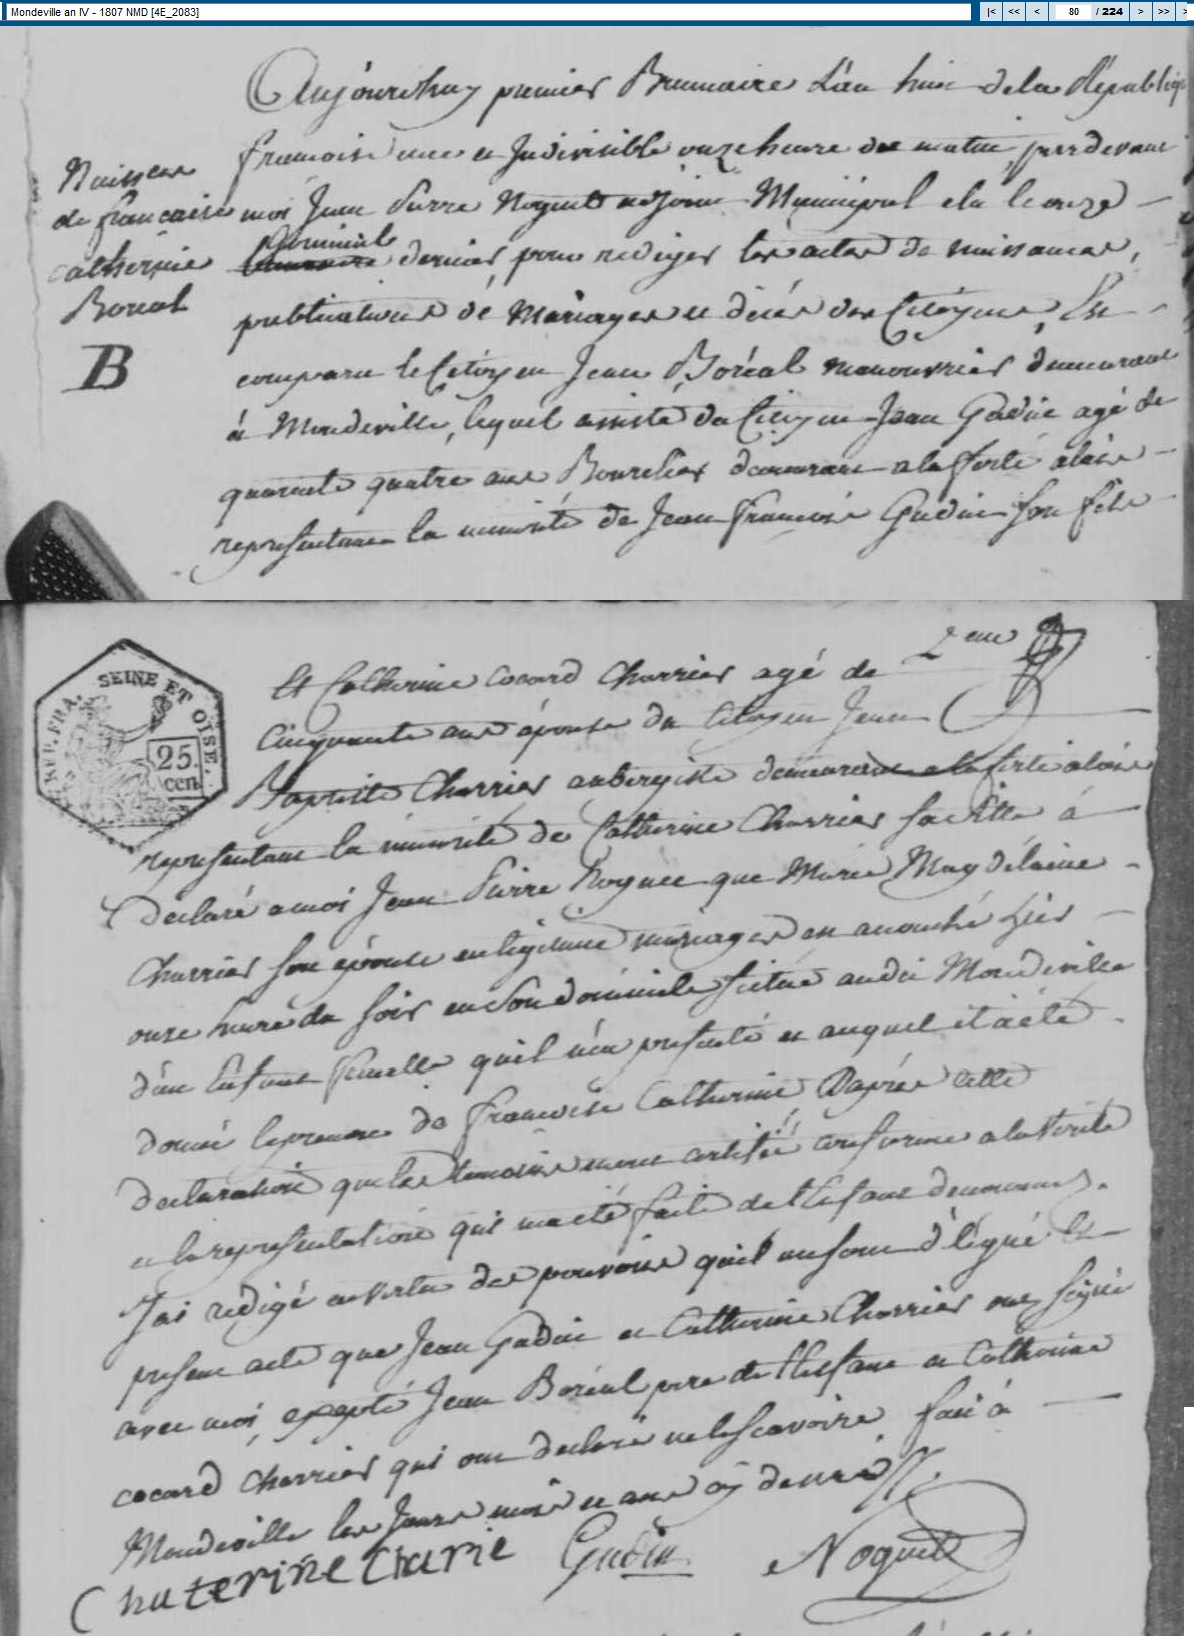 Mondeville an IV - 1807 NMD [4E_2083]
|< << < 80 / 224 > >> >
Aujourchuy premier Brumaire L'an huit de la Républiq
francoise une et Indivisible onze heure du matin, pardevant
moi Jean Pierre Noquet adjoint Municipal elu le onze
Germinale
dernier, pour rediger les actes de naissances,
publications de Mariages et décés des Citoyens, Est
comparu le Citoyen Jean Boréal manouvrier demeurant
à Mondeville, lequel assisté du Citoyen Jean Gadin agé de
quarente quatre ans Bourelier demeurant a la ferté alais
representant la minorité de Jean francois Gadin son fils
Naissance
de francoise
catherine
Boreal
B
2eme
SEINE ET OISE.
REP. FRA.
25.
cen.
Et Catherine Cocard Charrier agé de
Cinquante ans épouse du Citoyen Jean
Baptiste Charrier aubergiste demeurant a la ferté alais
representant la minorité de Catherine Charrier sa fille à
Declaré a moi Jean Pierre Noquet que Marie Magdelaine
Charrier son épouse en legitime mariage est accouché hier
onze heure du soir en son domicile scitué audit Mondeville
d'un Enfant femelle quil m'a presenté et auquel il a été
donné le prenom de francoise Catherine Daprès cette
declaration que les temoins mont certifié conforme a la Verité
et la representation qui ma été faite de l'Enfant denommé.
J'ai redigé en vertu des pouvoirs quil me sont délégué Et
present acte que Jean Gadin et Catherine Charrier ont signé
avec moi, excepté Jean Boréal pere de l'Enfant et Catherine
cocard Charrier qui ont declaré ne le scavoire fait à
Mondeville les Jours mois et ans
Chaterine Charie Gadin Noquet